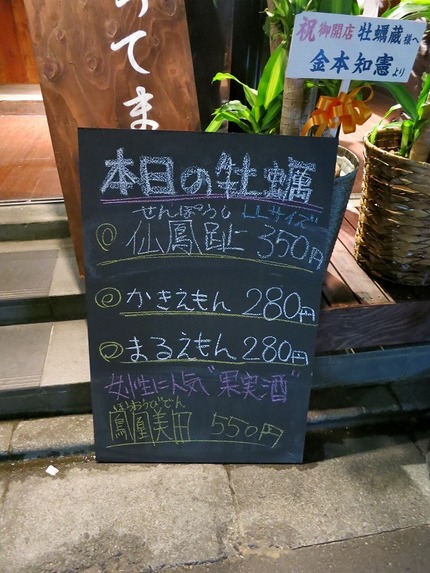 ってま
祝 御開店 牡蠣蔵様へ
金本知憲より
本日の牡蠣
せんぽうし LLサイズ
仙鳳趾 350円
かきえもん 280円
まるえもん 280円
女性に人気"果実酒"
ほおうびでん
鳳凰美田 550円